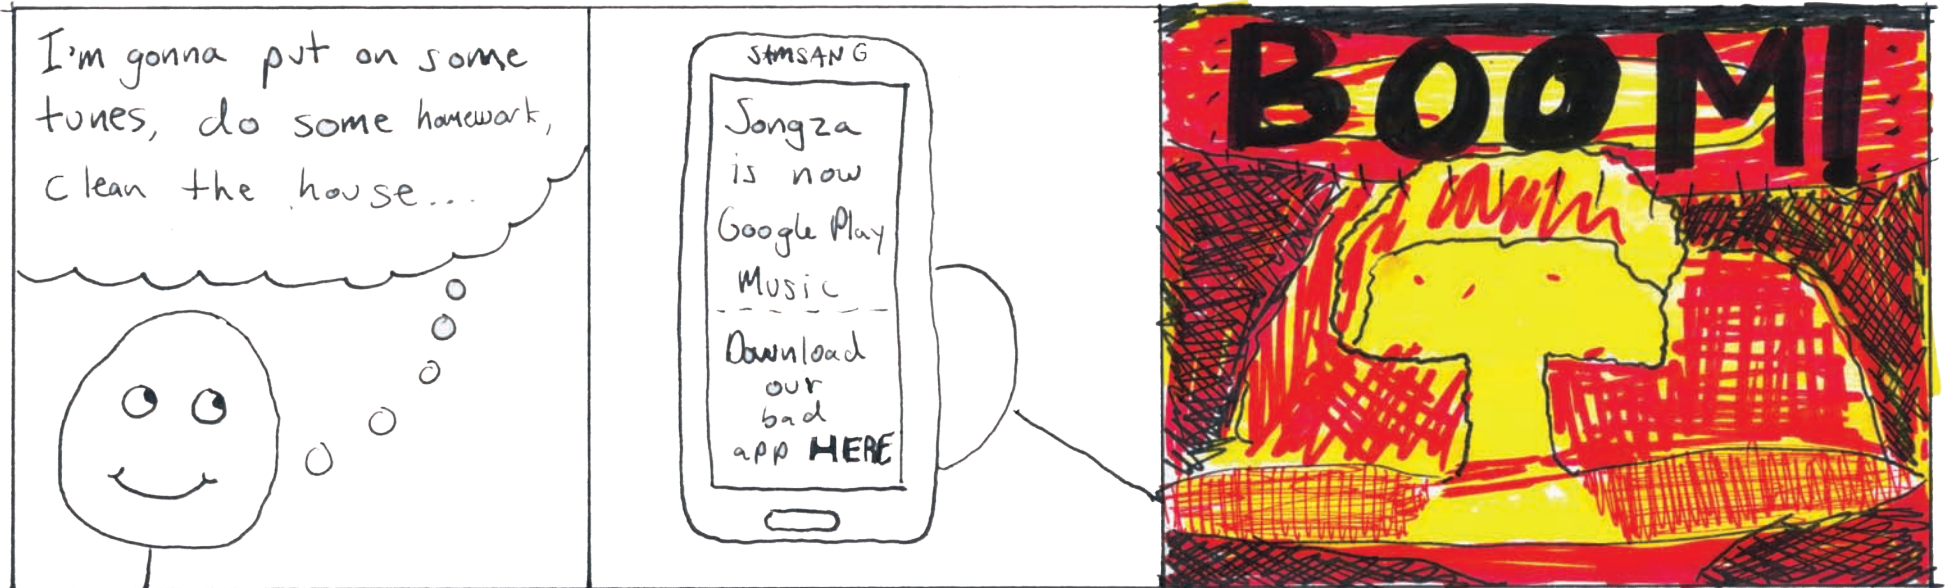 I'm gonna put on some
tunes, do some homework,
clean the house...
SAMSANG
Songza
is now
Google Play
Music
Download
our
bad
app HERE
BOOM!